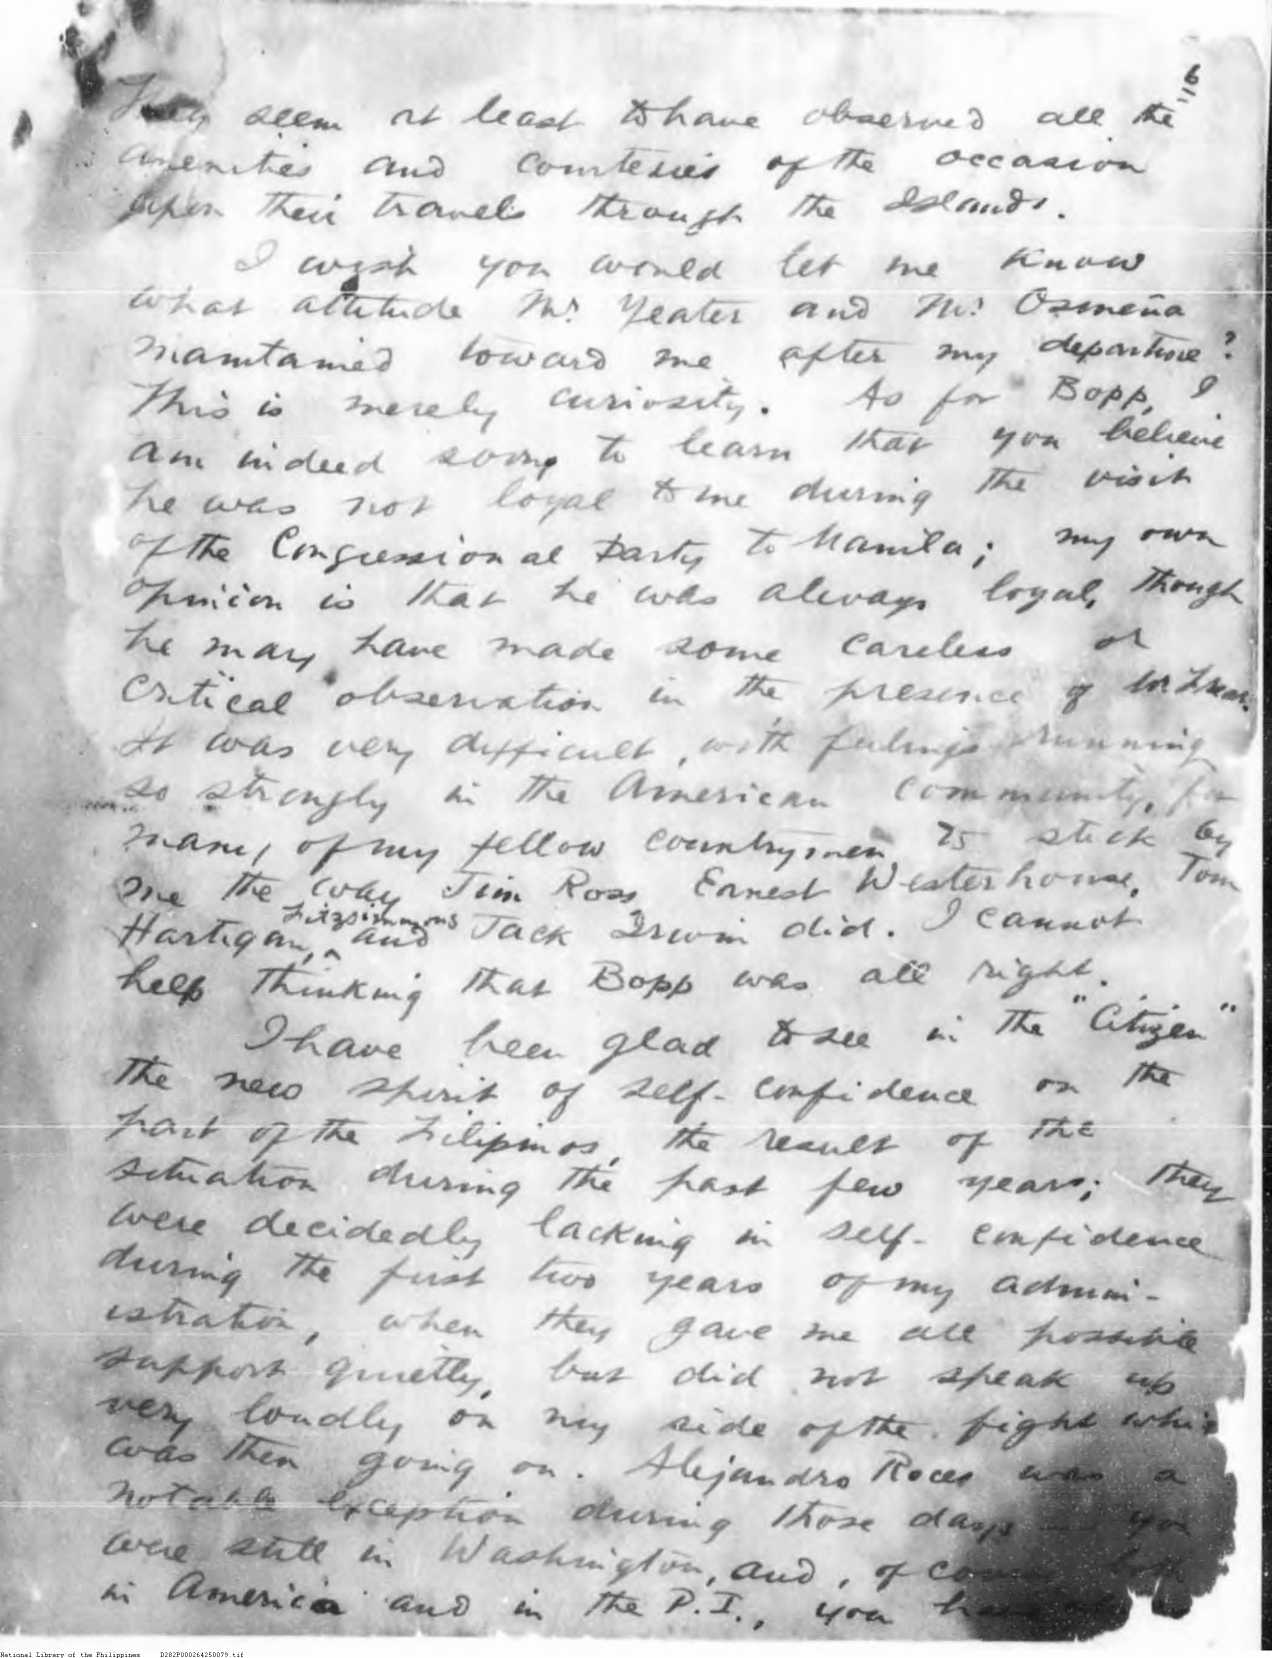 16
They seem at least to have observed all the
amenities and courtesies of the occasion
upon their travels through the Islands.
I wish you would let me know
what attitude Mr. Yeater and Mr. Osmeña
maintained toward me after my departure?
This is merely curiosity. As for Bopp, I
am indeed sorry to learn that you believe
he was not loyal to me during the visit
of the Congressional Party to Manila; my own
opinion is that he was always loyal, though
he may have made some careless or
critical observation in the presence of
It was very difficult, with feelings running
so strongly in the American community, for
many of my fellow countrymen to stick by
me the way Jim Ross, Ernest Westerhouse, Tom
Fitzsimmons
Hartigan, and Jack Irwin did. I cannot
help thinking that Bopp was all right.
I have been glad to see in the "Citizen"
the new spirit of self-confidence on the
part of the Filipinos, the result of the
situation during the past few years; they
were decidedly lacking in self-confidence
during the first two years of my admin-
istration, when they gave me all possible
support quietly, but did not speak up
very loudly on my side of the fight whi
was then going on. Alejandro Roces was a
notable exception during those days you
were still in Washington, and, of
in America and in the P.I., you
National Library of the Philippines D282P000264250079.tif